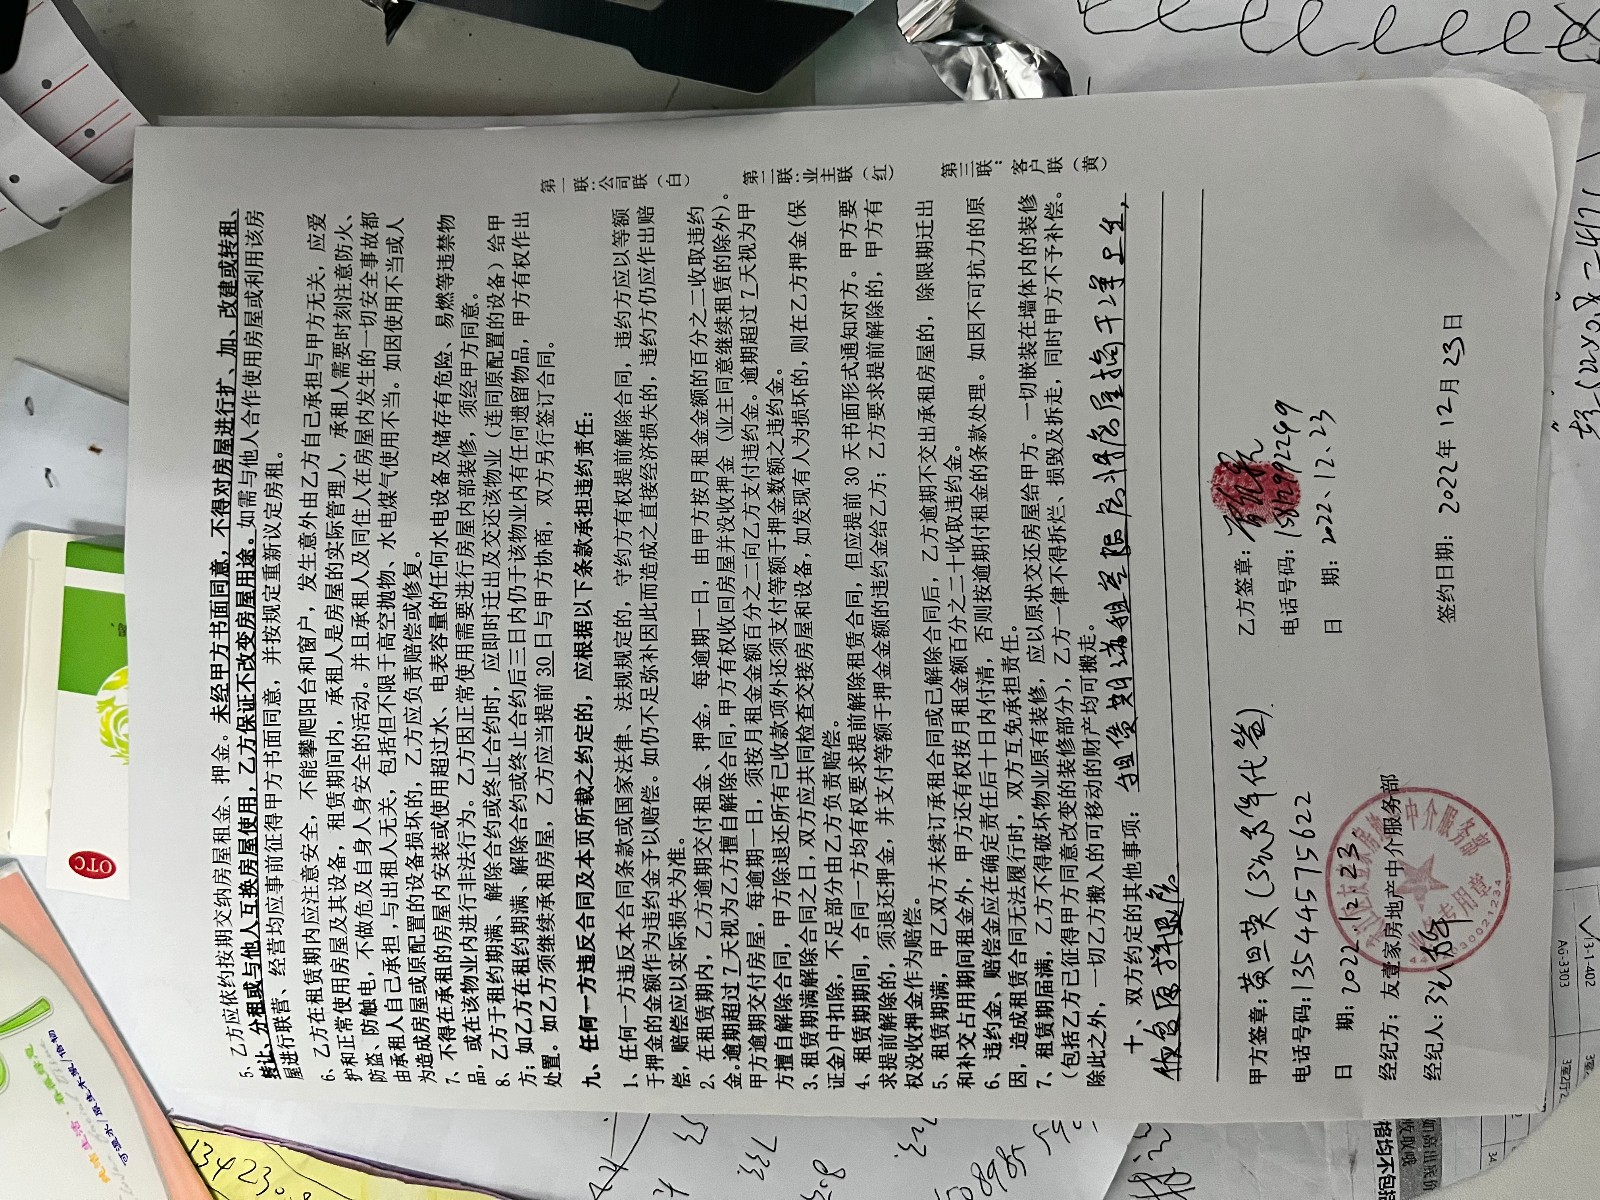 5、乙方应依约按期交纳房屋租金、押金。未经甲方书面同意，不得对房屋进行扩、加、改建或转租、
转让、分租或与他人互换房屋使用，乙方保证不改变房屋用途。如需与他人合作使用房屋或利用该房
屋进行联营、经营均应事前征得甲方书面同意，并按规定重新议定房租。
6、乙方在租赁期内应注意安全，不能攀爬阳台和窗户，发生意外由乙方自己承担与甲方无关，应爱
护和正常使用房屋及其设备，租赁期间内，承租人是房屋的实际管理人，承租人需要时刻注意防火、
防盗、防触电，不做危及自身人身安全的活动。并且承租人及同住人在房屋内发生的一切安全事故都
由承租人自己承担，与出租人无关，包括但不限于高空抛物、水电煤气使用不当。如因使用不当或人
为造成房屋或原配置的设备损坏的，乙方应负责赔偿或修复。
7、不得在承租的房屋内安装或使用超过水、电表容量的任何水电设备及储存有危险、易燃等违禁物
品，或在该物业内进行非法行为。乙方因正常使用需要进行房屋内部装修，须经甲方同意。
8、乙方于租约期满、解除合约或终止合约时，应即时迁出及交还该物业（连同原配置的设备）给甲
方；如乙方在租约期满、解除合约或终止合约后三日内仍于该物业内有任何遗留物品，甲方有权作出
处置。如乙方须继续承租房屋，乙方应当提前 30 日与甲方协商，双方另行签订合同。
九、任何一方违反合同及本页所载之约定的，应根据以下条款承担违约责任：
1、任何一方违反本合同条款或国家法律、法规规定的，守约方有权提前解除合同，违约方应以等额
于押金的金额作为违约金予以赔偿。如仍不足弥补因此而造成之直接经济损失的，违约方仍应作出赔
偿，赔偿应以实际损失为准。
2、在租赁期内，乙方逾期交付租金、押金，每逾期一日，由甲方按月租金金额的百分之二收取违约
金。逾期超过 7 天视为乙方擅自解除合同，甲方有权收回房屋并没收押金（业主同意继续租赁的除外）。
甲方逾期交付房屋，每逾期一日，须按月租金金额百分之二向乙方支付违约金。逾期超过 7 天视为甲
方擅自解除合同，甲方除退还所有已收款项外还须支付等额于押金数额之违约金。
3、租赁期满解除合同之日，双方应共同检查交接房屋和设备，如发现有人为损坏的，则在乙方押金（保
证金）中扣除，不足部分由乙方负责赔偿。
4、租赁期间，合同一方均有权要求提前解除租赁合同，但应提前 30 天书面形式通知对方。甲方要
求提前解除的，须退还押金，并支付等额于押金金额的违约金给乙方；乙方要求提前解除的，甲方有
权没收押金作为赔偿。
5、租赁期满，甲乙双方未续订承租合同或已解除合同后，乙方逾期不交出承租房屋的，除限期迁出
和补交占用期间租金外，甲方还有权按月租金额百分之二十收取违约金。
6、违约金、赔偿金应在确定责任后十日内付清，否则按逾期付租金的条款处理。如因不可抗力的原
因，造成租赁合同无法履行时，双方互免承担责任。
7、租赁期届满，乙方不得破坏物业原有装修，应以原状交还房屋给甲方。一切嵌装在墙体内的装修
（包括乙方已征得甲方同意改变的装修部分），乙方一律不得拆烂、损毁及拆走，同时甲方不予补偿。
除此之外，一切乙方搬入的可移动的财产均可搬走。
十、双方约定的其他事项：租赁期满租客随后将房屋搞干净卫生，
恢复原样退房
甲方签章：黄旦英（张筝代签）
乙方签章：
电话号码：13544575622
电话号码：
日 期：2022.12.23
日 期：2022.12.23
经纪方：友壹家房地产中介服务部
经纪人：张筝
签约日期：2022年12月23日
第一联：公司联（白）
第二联：业主联（红）
第三联：客户联（黄）
OTC